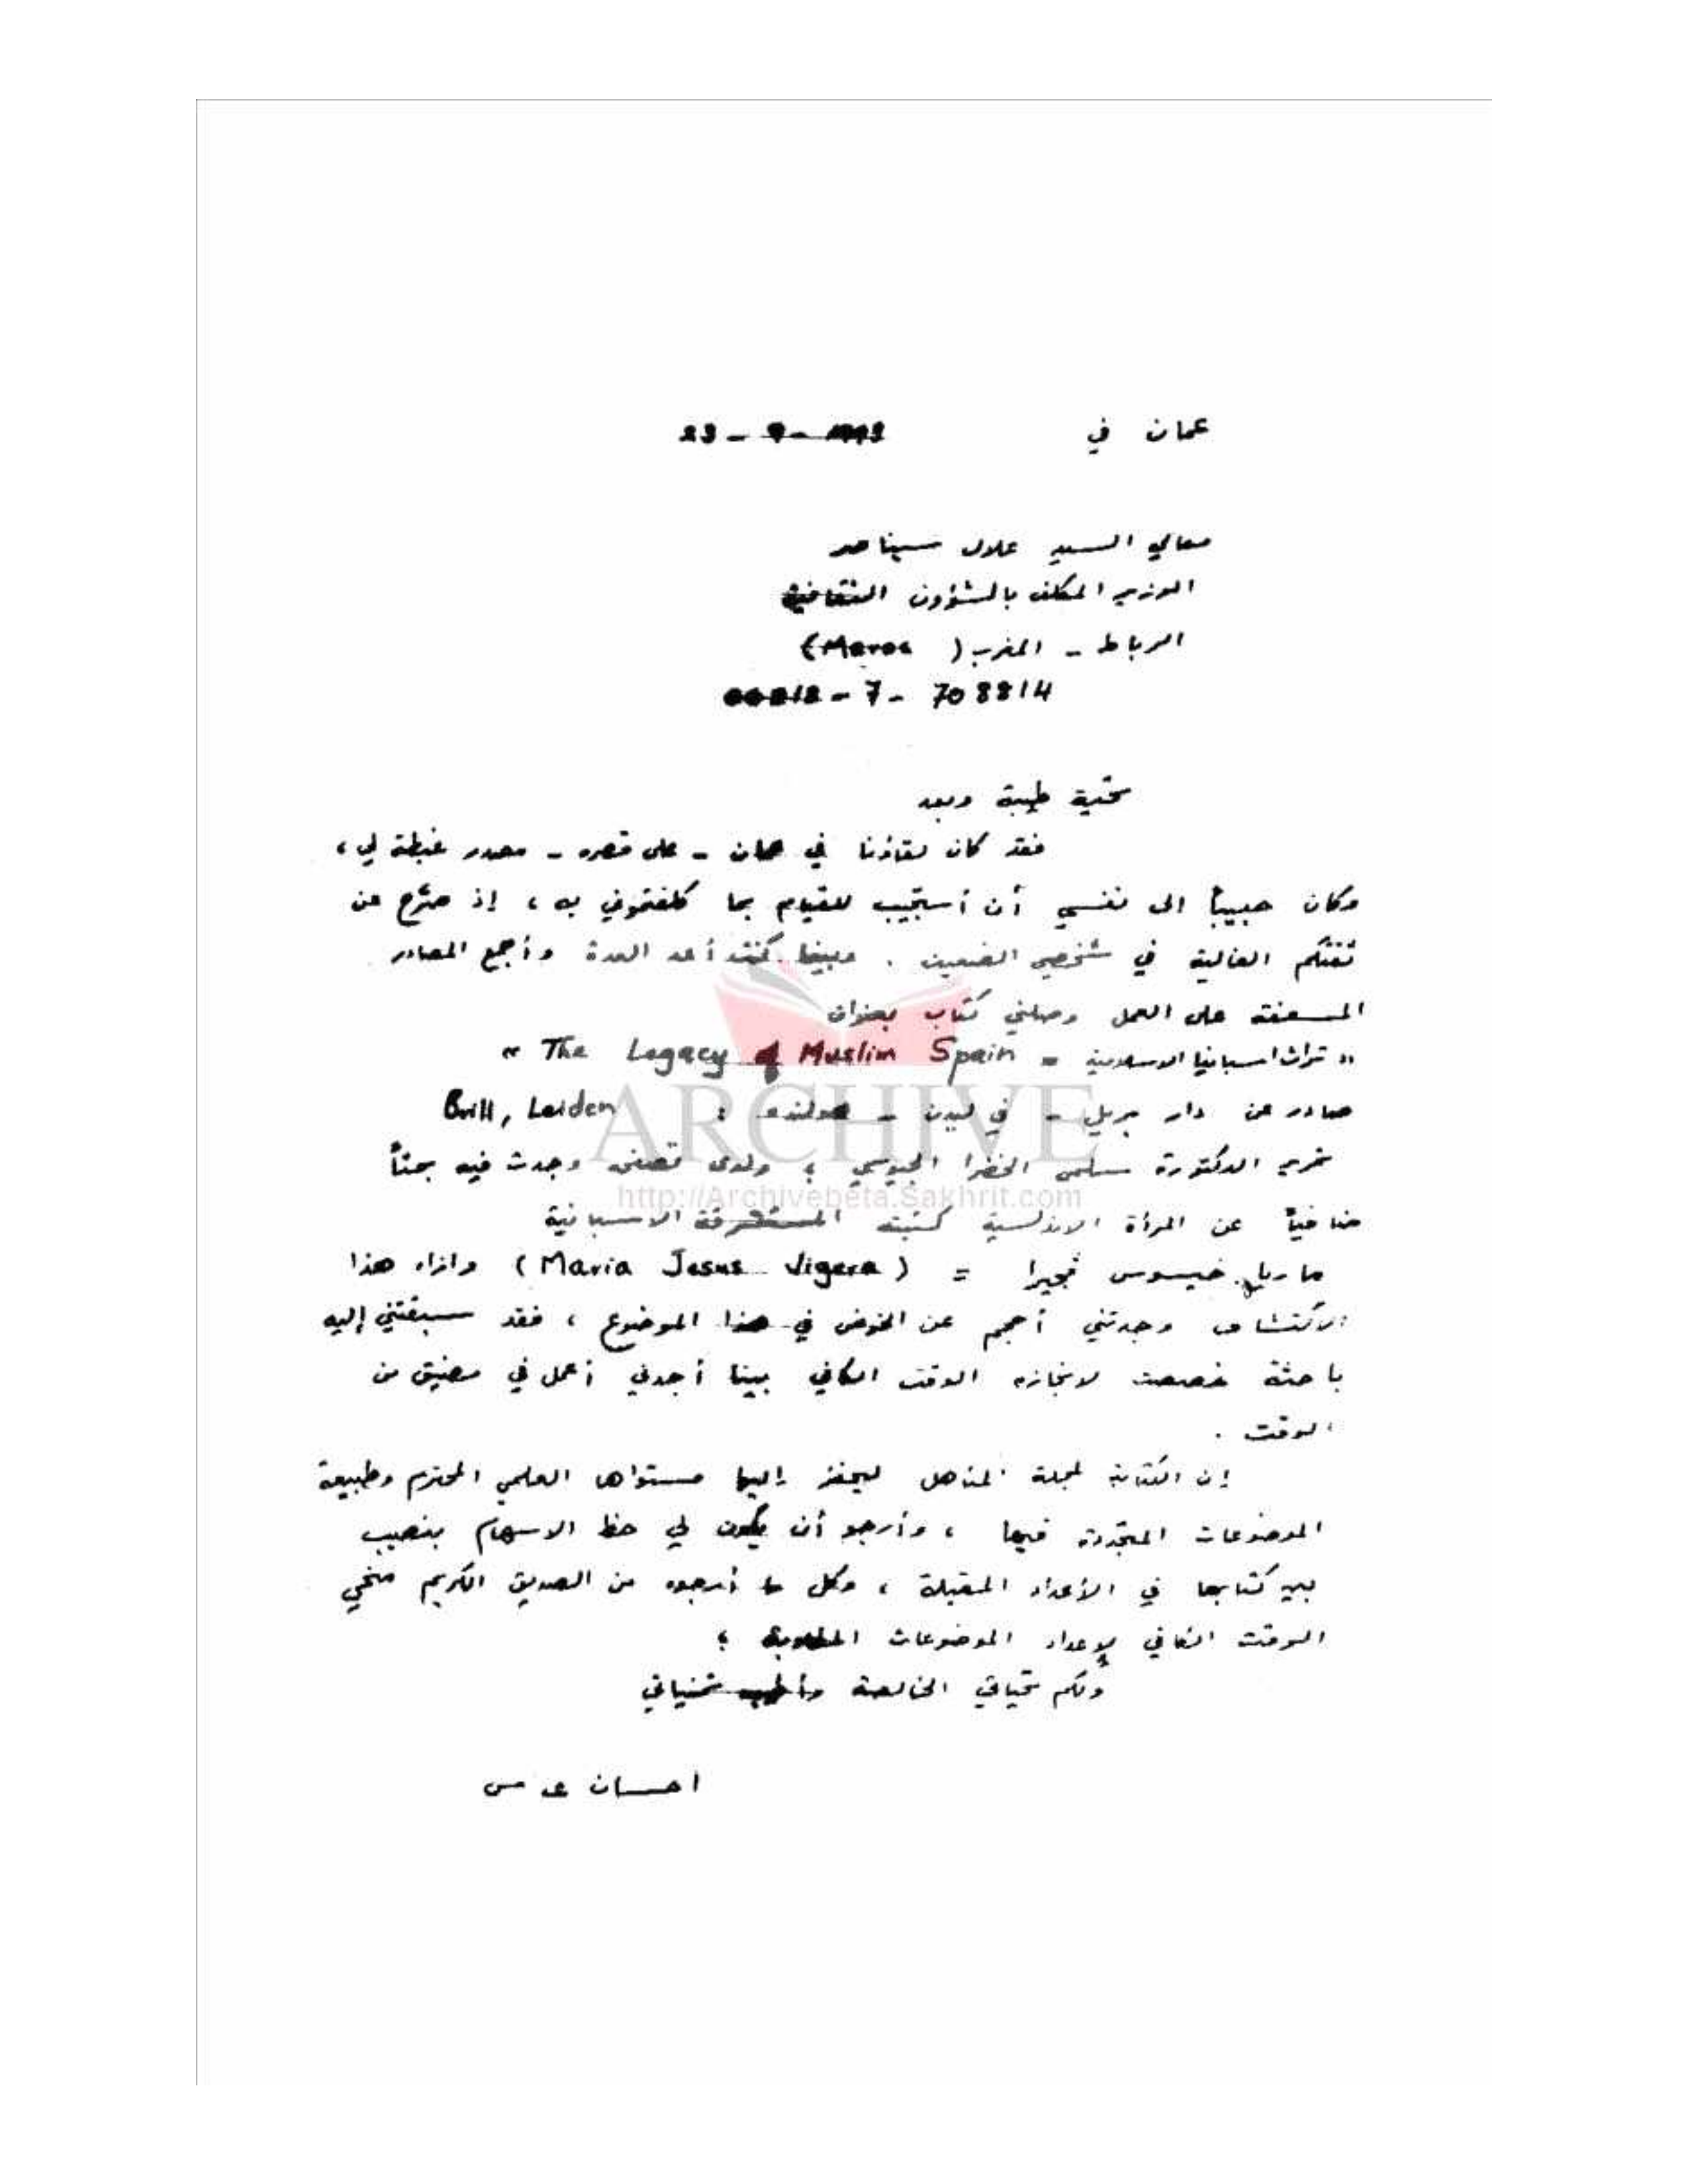 عمان في 23 - 9 - 1992
معالي السيد علال سيناصر
الوزير المكلف بالشؤون الثقافية
الرباط - المغرب ( Maroc )
00212 - 7 - 708814
تحية طيبة وبعد
فقد كان لقاؤنا في عمان - على قصره - مصدر غبطة لي ،
وكان حبيباً الى نفسي أن أستجيب للقيام بما كلفتموني به ، إذ عن
ثقتكم الغالية في شخصي الضعيف . وبينما كنت أعد العدة وأجمع المصادر
المسعفة على العمل وصلني كتاب بعنوان
" تراث اسبانيا الاسلامية = The Legacy of Muslim Spain "
صادر عن دار بريل - في ليدن - هولنده : Brill, Leiden
تحرير الدكتورة سلمى الخضرا الجيوسي ؛ ولدى تصفحه وجدت فيه بحثاً
ضافياً عن المرأة الاندلسية كتبته المستشرقة الاسبانية
ماريا خيسوس فجيرا = ( Maria Jesus Vigera ) وازاء هذا
الاكتشاف وجدتني أحجم عن الخوض في هذا الموضوع ، فقد سبقتني إليه
باحثة خصصت لانجازه الوقت الكافي بينا أجدني أعمل في مضيق من
الوقت .
إن الكتابة لمجلة المناهل ليحفز إليها مستواها العلمي المحترم وطبيعة
الموضوعات المتجددة فيها ، وأرجو أن يكون لي حظ الاسهام بنصيب
بين كتابها في الأعداد المقبلة ، وكل ما أرجوه من الصديق الكريم منحي
الوقت الكافي لإعداد الموضوعات المطلوبة ؛
ولكم تحياتي الخالصة وأطيب تمنياتي
احسان عباس
ARCHIVE
http://Archivebeta.Sakhrit.com